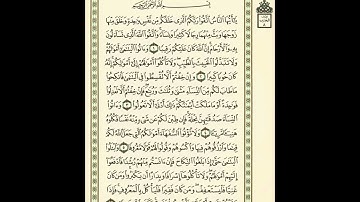 بِسْمِ اللَّهِ الرَّحْمَٰنِ الرَّحِيمِ
يَا أَيُّهَا النَّاسُ اتَّقُوا رَبَّكُمُ الَّذِي خَلَقَكُم مِّن نَّفْسٍ وَاحِدَةٍ وَخَلَقَ مِنْهَا
زَوْجَهَا وَبَثَّ مِنْهُمَا رِجَالًا كَثِيرًا وَنِسَاءً وَاتَّقُوا اللَّهَ الَّذِي تَسَاءَلُونَ
بِهِ وَالْأَرْحَامَ إِنَّ اللَّهَ كَانَ عَلَيْكُمْ رَقِيبًا ١ وَآتُوا الْيَتَامَىٰ أَمْوَالَهُمْ
وَلَا تَتَبَدَّلُوا الْخَبِيثَ بِالطَّيِّبِ وَلَا تَأْكُلُوا أَمْوَالَهُمْ إِلَىٰ أَمْوَالِكُمْ إِنَّهُ
كَانَ حُوبًا كَبِيرًا ٢ وَإِنْ خِفْتُمْ أَلَّا تُقْسِطُوا فِي الْيَتَامَىٰ فَانكِحُوا
مَا طَابَ لَكُم مِّنَ النِّسَاءِ مَثْنَىٰ وَثُلَاثَ وَرُبَاعَ فَإِنْ خِفْتُمْ أَلَّا تَعْدِلُوا
فَوَاحِدَةً أَوْ مَا مَلَكَتْ أَيْمَانُكُمْ ذَٰلِكَ أَدْنَىٰ أَلَّا تَعُولُوا ٣ وَآتُوا
النِّسَاءَ صَدُقَاتِهِنَّ نِحْلَةً فَإِن طِبْنَ لَكُمْ عَن شَيْءٍ مِّنْهُ نَفْسًا فَكُلُوهُ
هَنِيئًا مَّرِيئًا ٤ وَلَا تُؤْتُوا السُّفَهَاءَ أَمْوَالَكُمُ الَّتِي جَعَلَ اللَّهُ لَكُمْ
قِيَامًا وَارْزُقُوهُمْ فِيهَا وَاكْسُوهُمْ وَقُولُوا لَهُمْ قَوْلًا مَّعْرُوفًا ٥ وَابْتَلُوا
الْيَتَامَىٰ حَتَّىٰ إِذَا بَلَغُوا النِّكَاحَ فَإِنْ آنَسْتُم مِّنْهُمْ رُشْدًا فَادْفَعُوا
إِلَيْهِمْ أَمْوَالَهُمْ وَلَا تَأْكُلُوهَا إِسْرَافًا وَبِدَارًا أَن يَكْبَرُوا وَمَن كَانَ
غَنِيًّا فَلْيَسْتَعْفِفْ وَمَن كَانَ فَقِيرًا فَلْيَأْكُلْ بِالْمَعْرُوفِ فَإِذَا